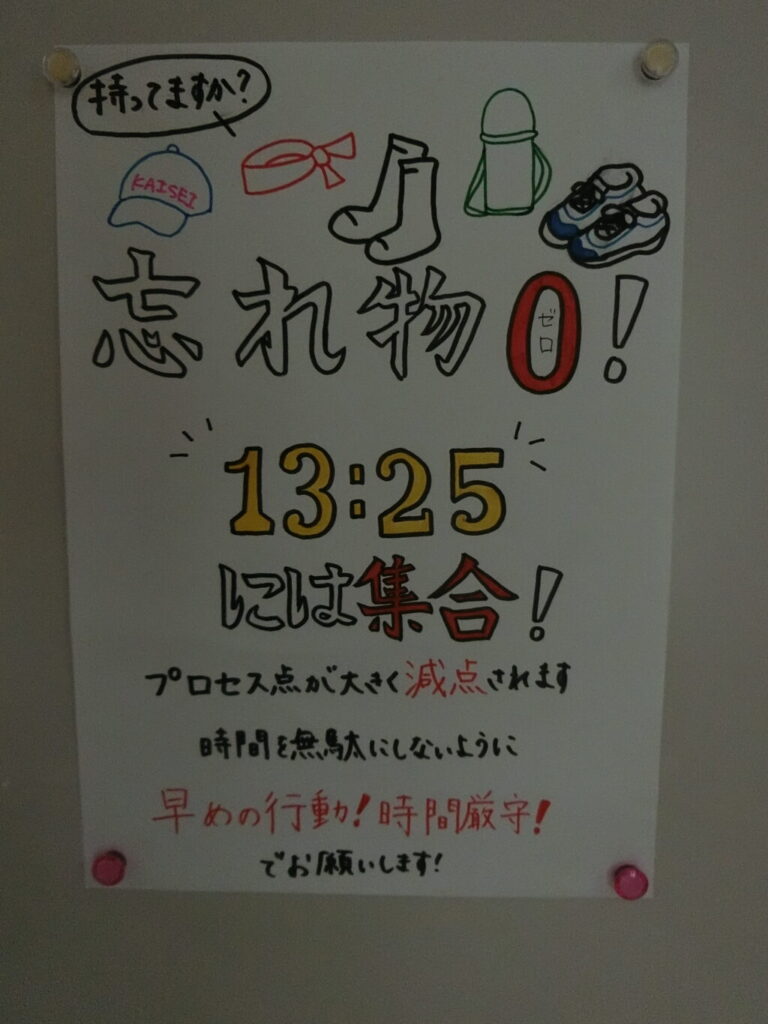 持ってますか?
KAISEI
忘れ物0!
ゼロ
13:25
には集合!
プロセス点が大きく減点されます
時間を無駄にしないように
早めの行動!時間厳守!
でお願いします!